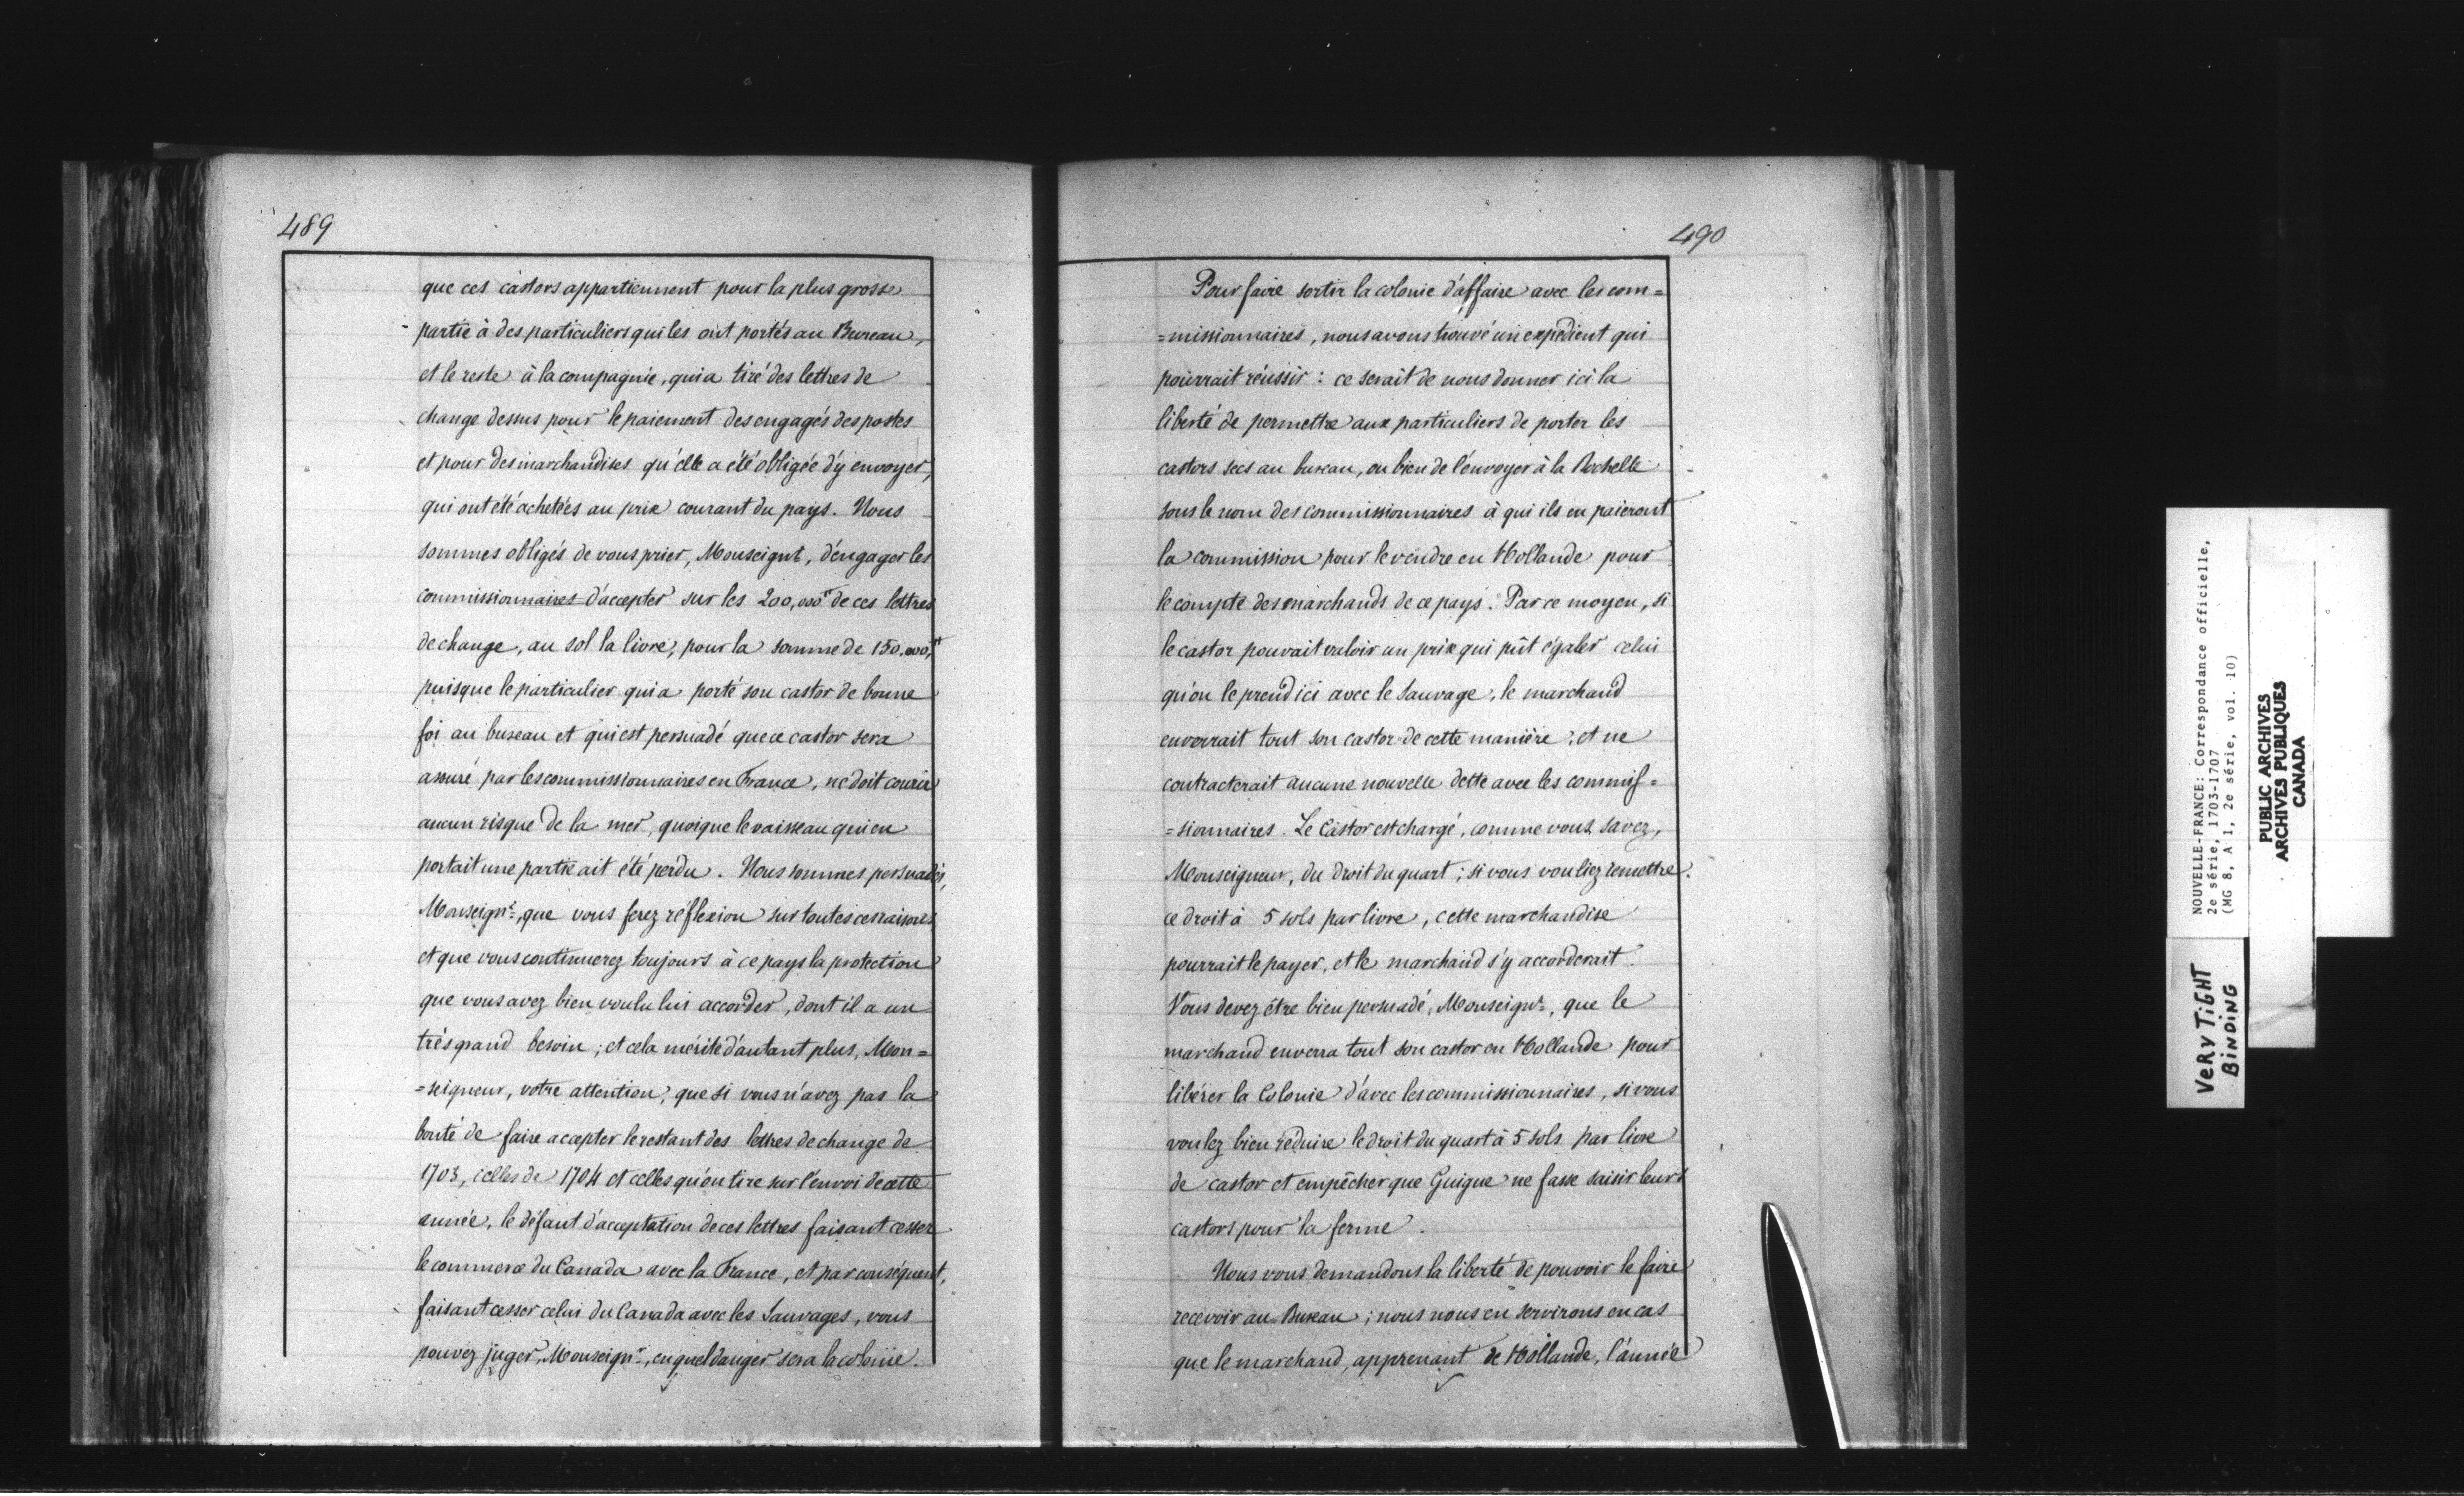 489
que ces castors appartiennent pour la plus grosse
partie à des particuliers qui les ont portés au Bureau,
et le reste à la compagnie, qui a tiré des lettres de
change dessus pour le paiement des engagés des postes
et pour des marchandises qu'elle a été obligée d'y envoyer,
qui ont été achetées au prix courant du pays. Nous
sommes obligés de vous prier, Monseignr, d'engager les
commissionnaires d'accepter sur les 200,000 ₶ de ces lettres
de change, au sol la livre, pour la somme de 150,000 ₶,
puisque le particulier qui a porté son castor de bonne
foi au bureau et qui est persuadé que ce castor sera
assuré par les commissionnaires en France, ne doit courir
aucun risque de la mer, quoique le vaisseau qui en
portait une partie ait été perdu. Nous sommes persuadés,
Monseignr, que vous ferez réflexion sur toutes ces raisons
et que vous continuerez toujours à ce pays la protection
que vous avez bien voulu lui accorder, dont il a un
très grand besoin ; et cela mérite d'autant plus, Mon=
=seigneur, votre attention, que si vous n'avez pas la
bonté de faire accepter le restant des lettres de change de
1703, celles de 1704 et celles qu'on tire sur l'envoi de cette
année, le défaut d'acceptation de ces lettres faisant cesser
le commerce du Canada avec la France, et par conséquent,
faisant cesser celui du Canada avec les Sauvages, vous
pouvez juger, Monseignr, en quel danger sera la colonie.
490
Pour faire sortir la colonie d'affaire avec les com=
=missionnaires, nous avons trouvé un expédient qui
pourrait réussir : ce serait de nous donner ici la
liberté de permettre aux particuliers de porter les
castors secs au bureau, ou bien de l'envoyer à la Rochelle
sous le nom des commissionnaires à qui ils en paieront
la commission pour le vendre en Hollande pour
le compte des marchands de ce pays. Par ce moyen, si
le castor pouvait valoir un prix qui pût égaler celui
qu'on le prend ici avec le Sauvage, le marchand
enverrait tout son castor de cette manière, et ne
contracterait aucune nouvelle dette avec les commis=
=sionnaires. Le Castor est chargé, comme vous savez,
Monseigneur, du droit du quart ; si vous vouliez remettre
ce droit à 5 sols par livre, cette marchandise
pourrait le payer, et le marchand s'y accorderait.
Vous devez être bien persuadé, Monseignr, que le
marchand enverra tout son castor en Hollande pour
libérer la Colonie d'avec les commissionnaires, si vous
voulez bien réduire le droit du quart à 5 sols par livre
de castor et empêcher que Guigue ne fasse saisir leurs
castors pour la ferme.
Nous vous demandons la liberté de pouvoir le faire
recevoir au Bureau ; nous nous en servirons en cas
que le marchand, apprenant de Hollande, l'année
NOUVELLE-FRANCE: Correspondance officielle,
2e série, 1703-1707
(MG 8, A 1, 2e série, vol. 10)
PUBLIC ARCHIVES
ARCHIVES PUBLIQUES
CANADA
VERY TIGHT
BINDING